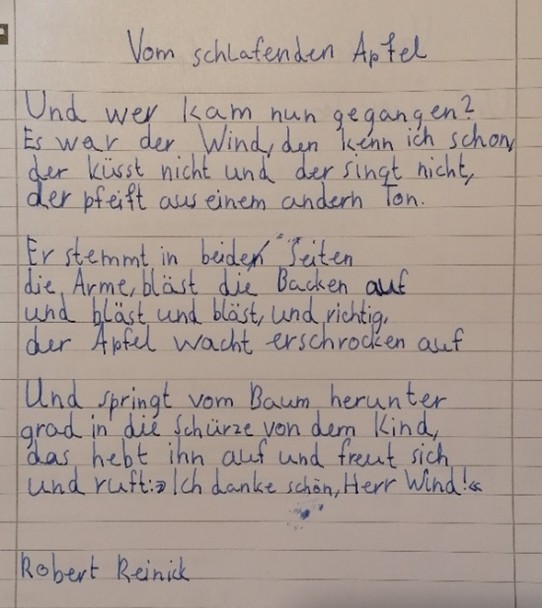 Vom schlafenden Apfel
Und wer kam nun gegangen?
Es war der Wind, den kenn ich schon,
der küsst nicht und der singt nicht,
der pfeift aus einem andern Ton.
Er stemmt in beide Seiten
die Arme, bläst die Backen auf
und bläst und bläst, und richtig,
der Apfel wacht erschrocken auf
Und springt vom Baum herunter
grad in die Schürze von dem Kind,
das hebt ihn auf und freut sich
und ruft: »Ich danke schön, Herr Wind!«
Robert Reinick